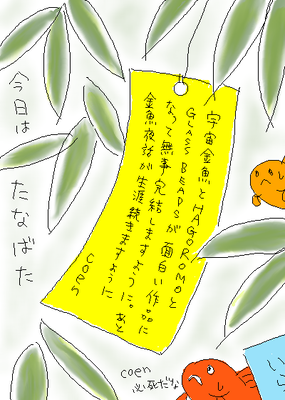 宇宙金魚とHAGOROMOと
GLASS BEADSが面白い作品に
なって無事完結しますように。あと
金魚夜話が生涯続きますように
coen
今日は
たなばた
coen
必死だな
いら